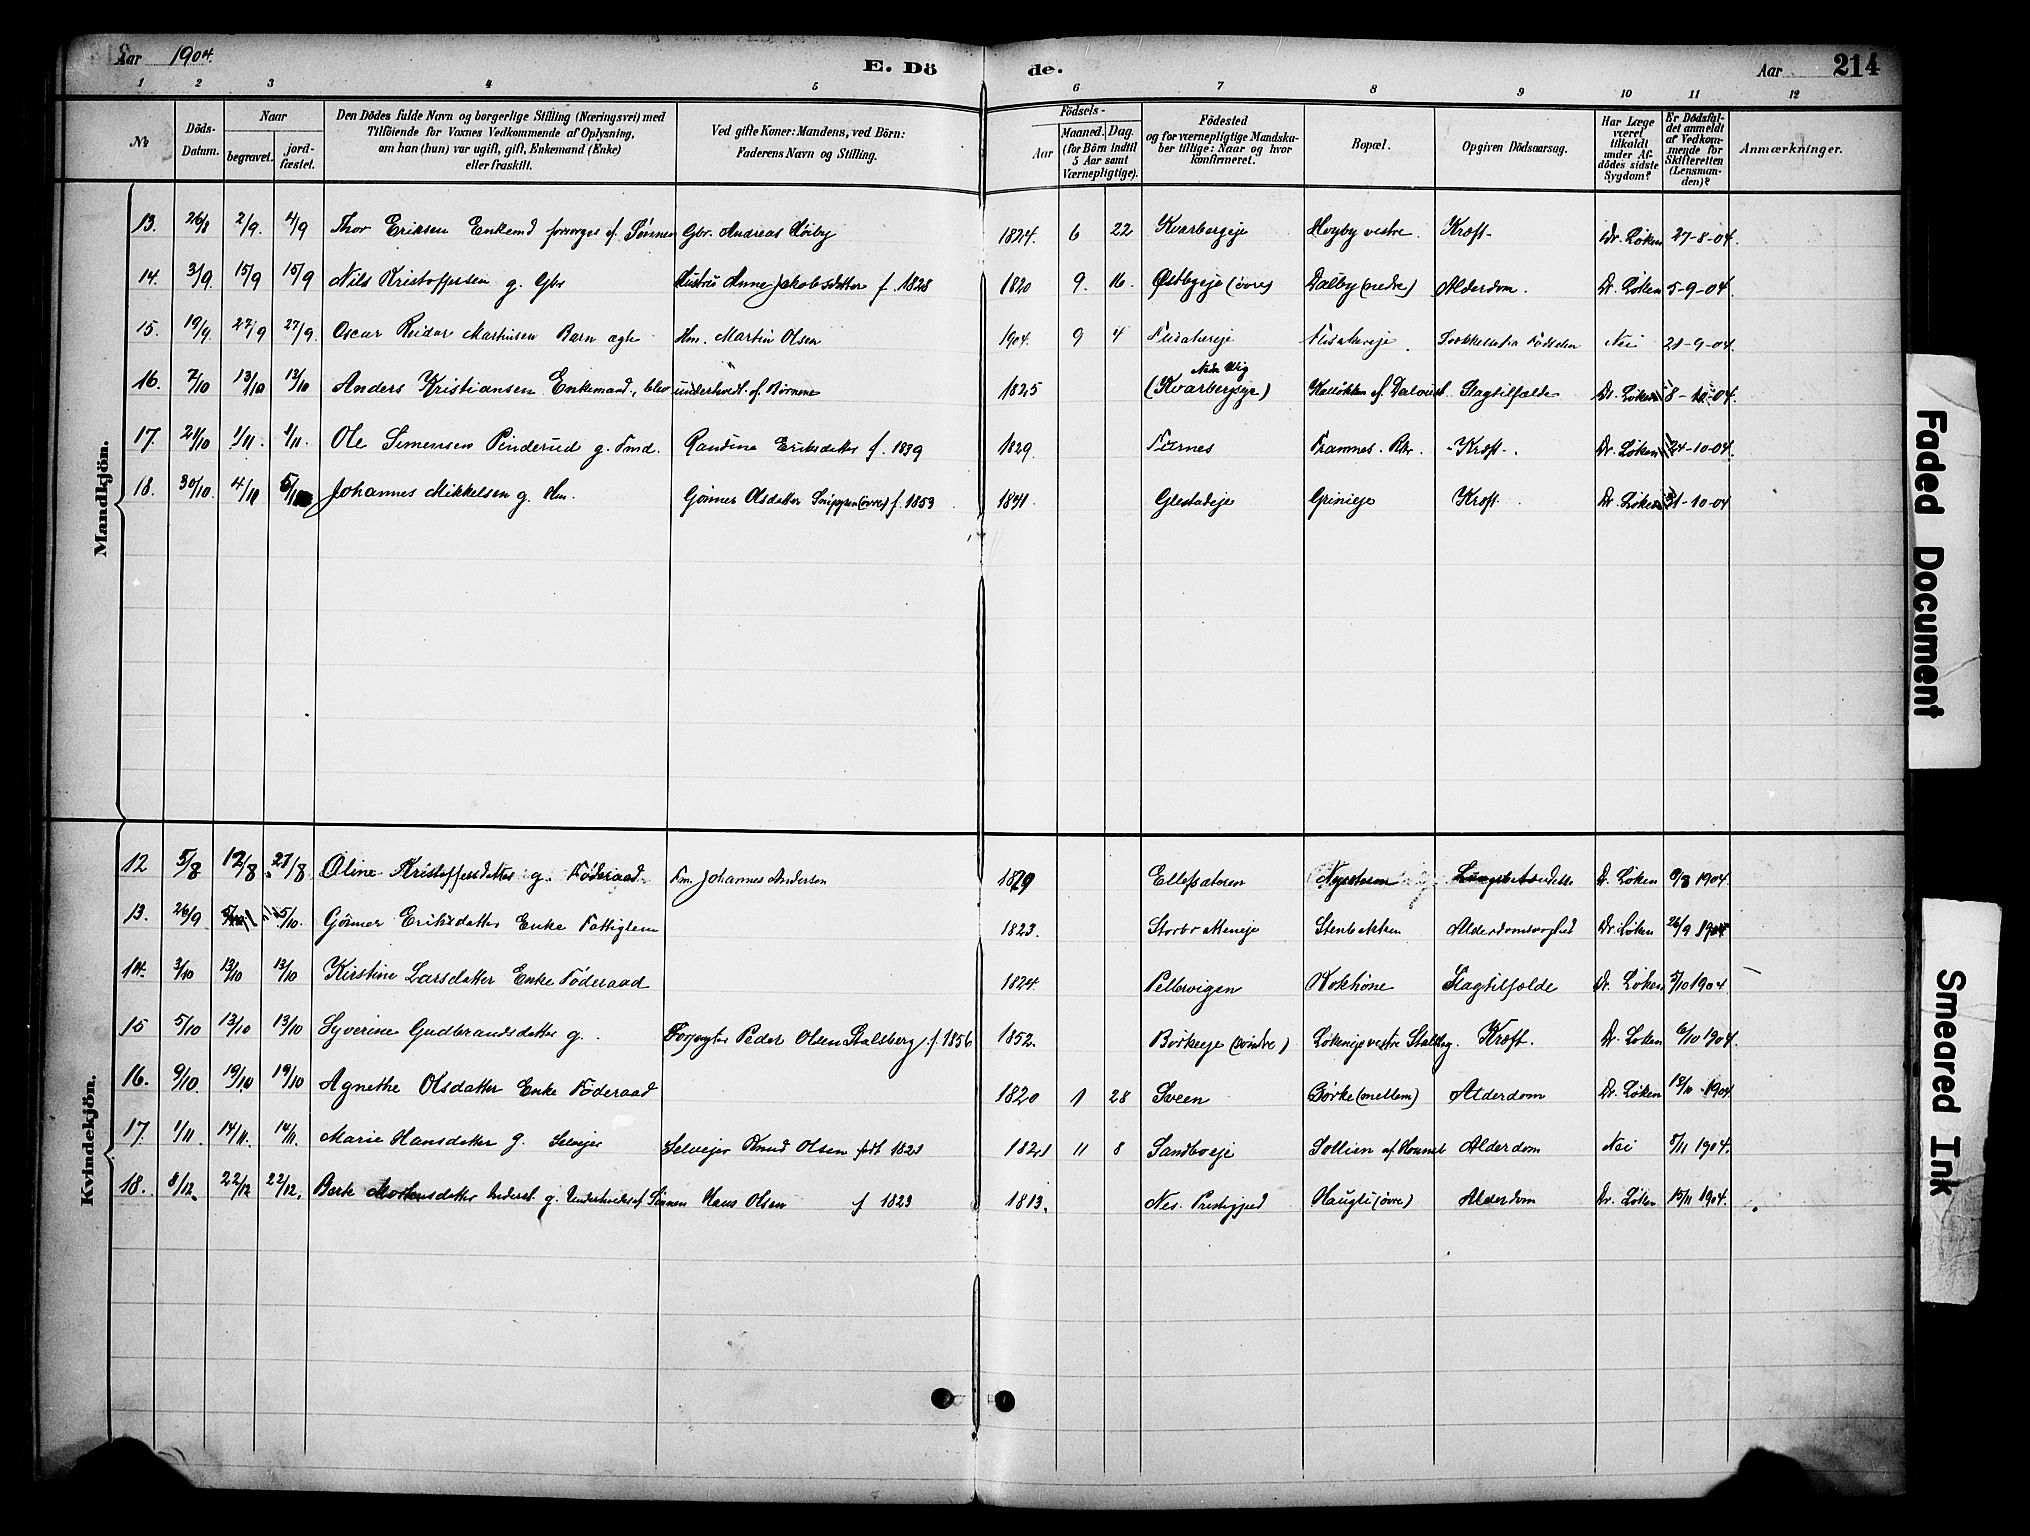 Aar 1904. E. Dö de. Aar 214
1 2 3 4 5 6 7 8 9 10 11 12
№ Döds-Datum. Naar begravet. jord-fæstet. Den Dödes fulde Navn og borgerlige Stilling (Næringsvei) med Tilföiende for Voxnes Vedkommende af Oplysning, om han (hun) var ugift, gift, Enkemand (Enke) eller fraskilt. Ved gifte Koner: Mandens, ved Börn: Faderens Navn og Stilling. Födsels- Aar Maaned. Dag. (for Börn indtil 5 Aar samt Værnepligtige). Födested og for værnepligtige Mandskaber tillige: Naar og hvor konfirmeret. Bopæl. Opgiven Dödsaarsag. Har Læge været tilkaldt under Afdödes sidste Sygdom? Er Dödsfaldet anmeldt af Vedkommende for Skifteretten (Lensmanden)? Anmærkninger.
Mandkjön.
13. 26/8 2/9. 4/9 Thor Eriksen Enkemd forsorges af Sønnen Gbr. Andreas Høiby 1824. 6 22 Kvarbergeje Høyby vestre. Kræft. Dr. Løken 27-8-04.
14. 3/9. 15/9 15/9 Nils Kristoffersen g. Gbr Hustru Anne Jakobsdatter f. 1828 1820 9. 16. Østbyeje (øvre) Dalby (nedre) Alderdom. Dr. Løken 5-9-04.
15. 19/9. 27/9 27/9. Oscar Reidar Martinsen Barn ægte Hm. Martin Olsen 1904. 9 4 Flisakereje Flisakereje. Fødselen Nei 21-9-04.
16. 7/10 13/10 13/10 Anders Kristiansen Enkemand, blev underholdt af Børnene 1825 (Kvarbergseje) Slagtilfælde Dr. Løken 8-10-04.
17. 21/10 1/11. 1/11. Ole Simensen Pinderud g. Fmd. Randine Eriksdatter f. 1839 1829. Kræft. Dr. Løken 24-10-04.
18. 30/10. 4/11 5/11 Johannes Mikkelsen g. Hm. Gønner Olsdatter Snippen (øvre) f. 1853 1841 Glestadeje Grinieje Kræft Dr. Løken 31-10-04
Kvindekjön.
12 5/8 12/8. 21/8 Oline Kristoffersdatter g. Føderaad Fm. Johannes Andersen 1829 Ellefsæteren Dr. Løken 9/8 1904.
13. 26/9 5/10. Gønner Eriksdatter Enke Fattiglem 1823. Storbrætteneje Stenbækken Alderdomssvaghed Dr. Løken 26/9 1904
14. 3/10 13/10 13/10 Kirstine Larsdatter Enke Føderaad 1824. Pellervigen Kokhøne Slagtilfælde Dr. Løken 5/10 1904
15 5/10 13/10 13/10 Syverine Gudbrandsdatter g. Forpagter Peder Olsen Stalsberg f. 1856 1852. Børkeeje (søndre) Løkeneje vestre Stalsbg. Kræft. Dr. Løken 6/10 1904.
16. 9/10. 19/10 19/10 Agnethe Olsdatter Enke Føderaad 1820 1 28 Sveen Børke (mellem) Alderdom Dr. Løken 13/10 1904
17. 1/11. 14/11. 14/11. Marie Hansdatter g. Selvejer Selvejer Knud Olsen født 1821 1821 11 8 Sandboeje Sollien af Alderdom Nei 5/11 1904.
18. 8/12. 22/12 22/12. Berte Mortensdatter Inderst g. Underholdes af Sønnen Hans Olsen f 1823 1813. Nes. Prestegjed Haugli (øvre) Alderdom Dr. Løken 15/11 1904.
Faded Document
Smeared Ink